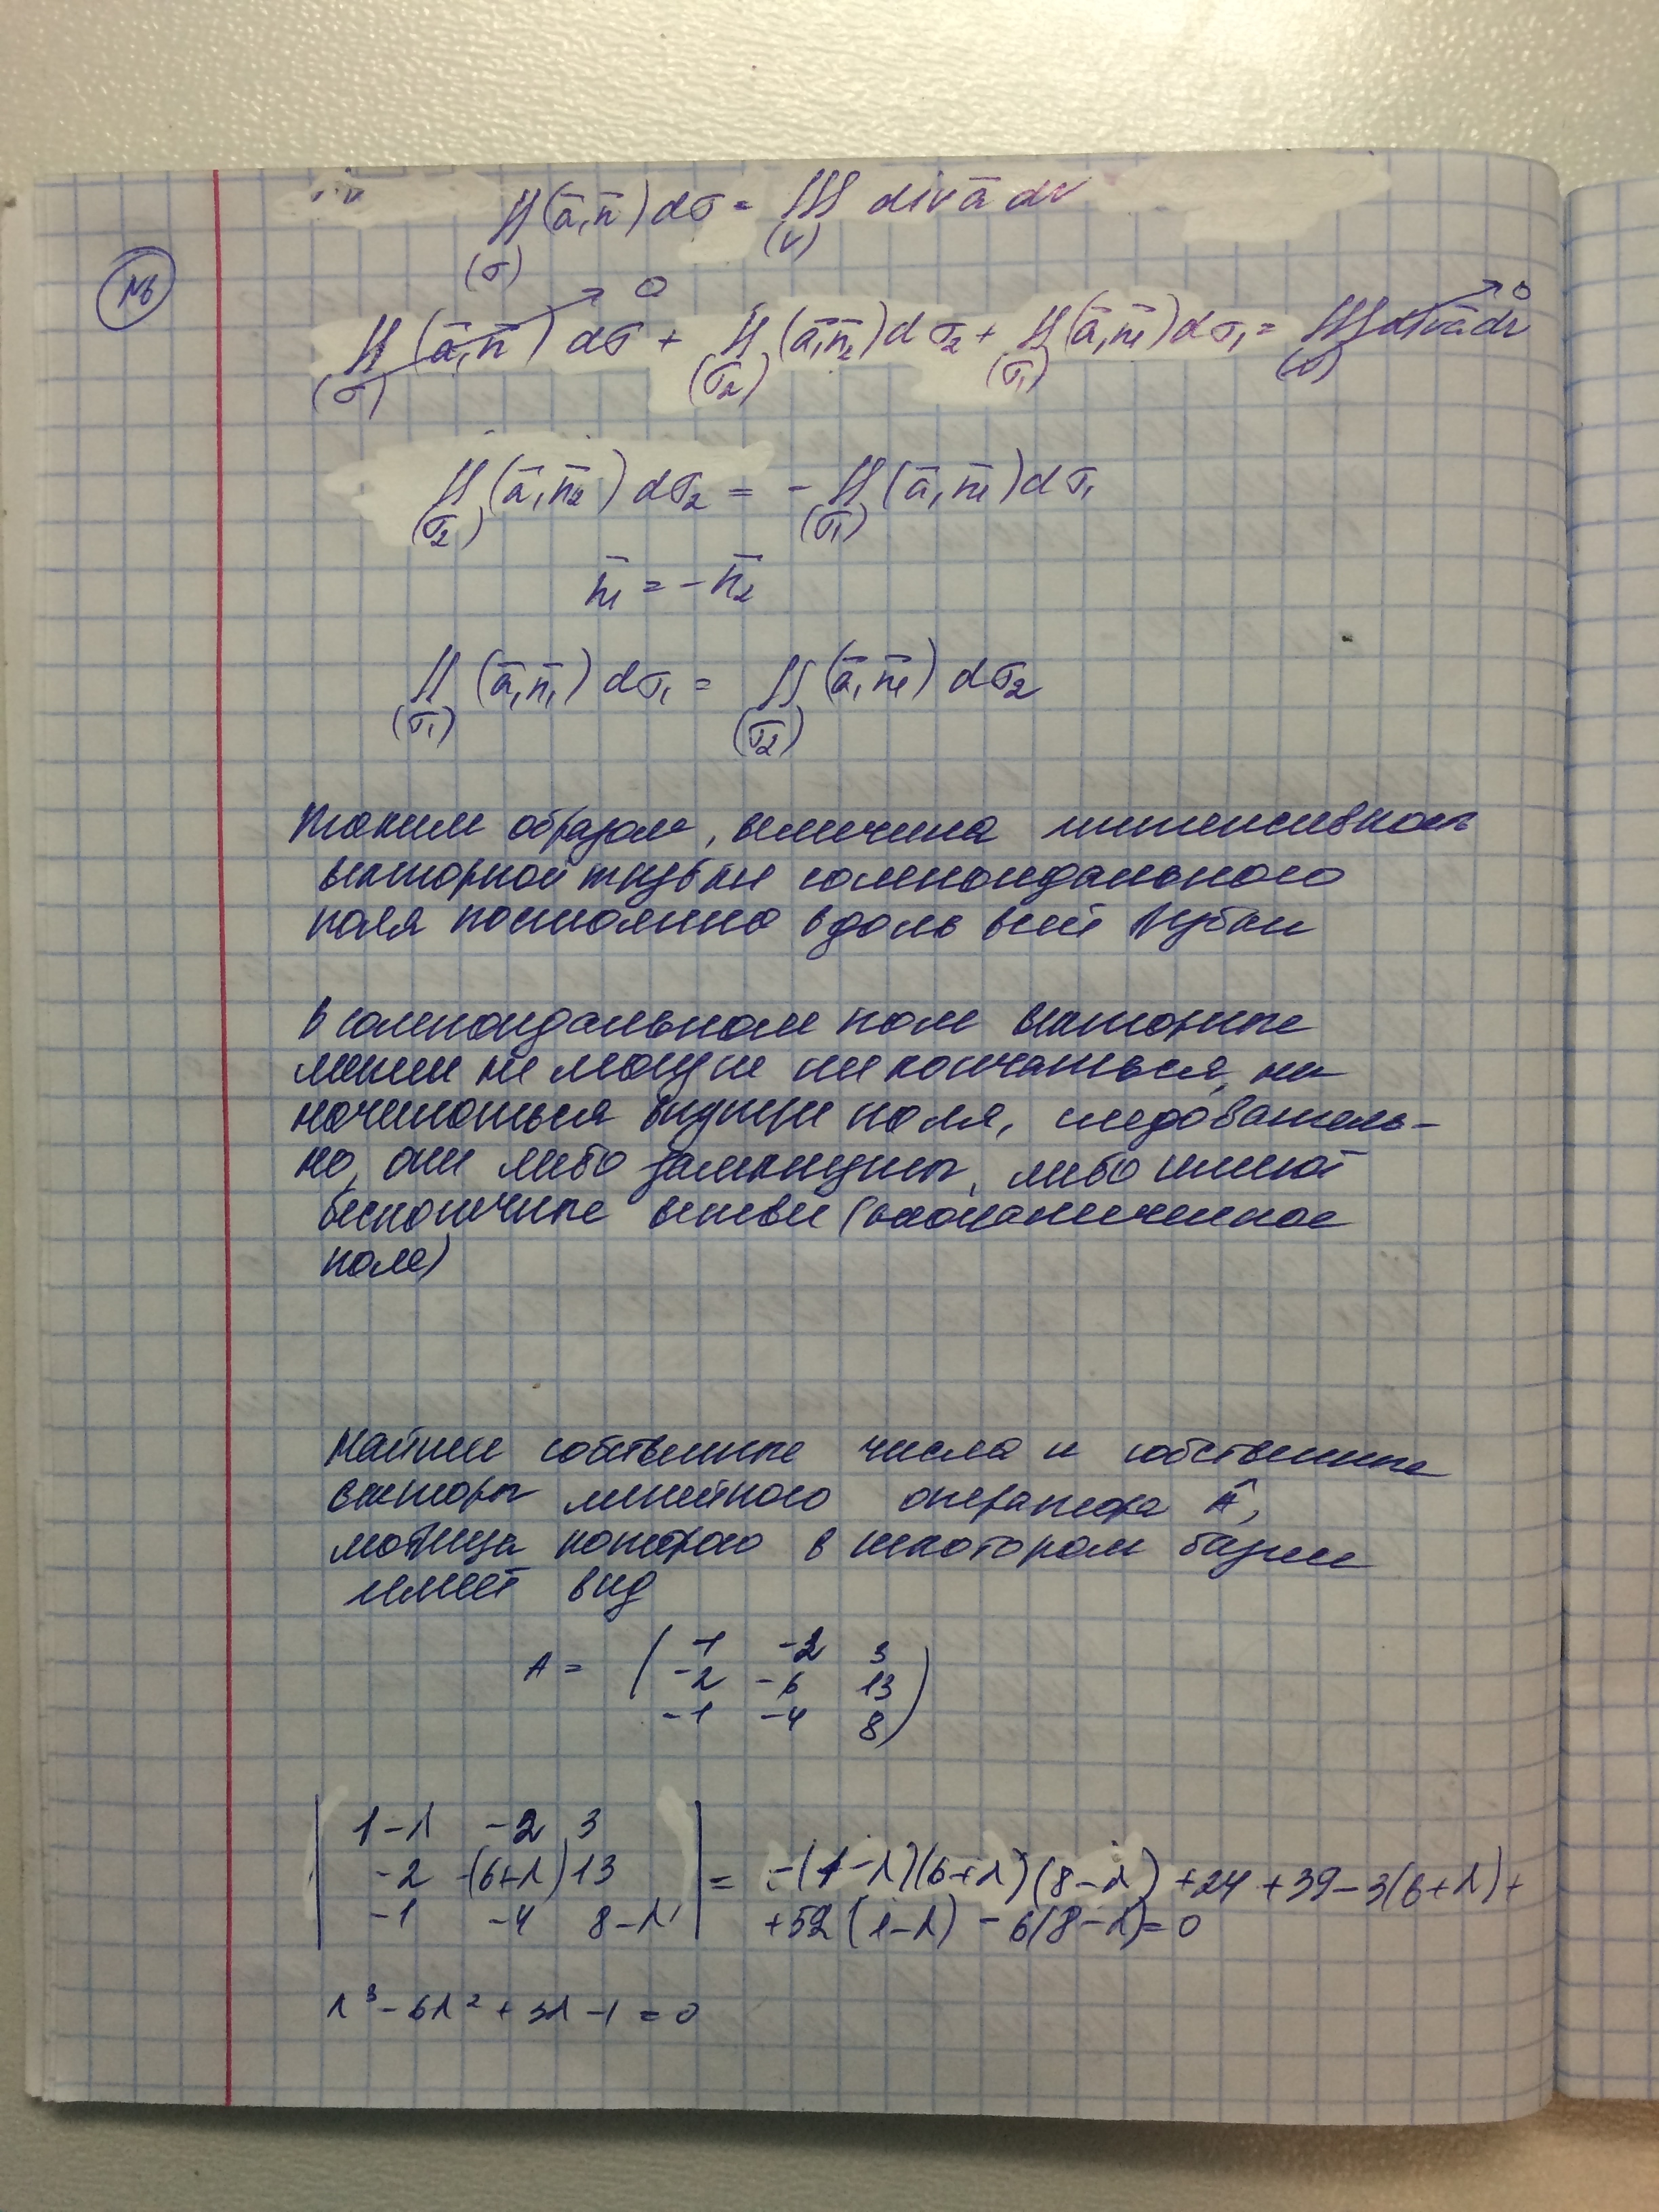 ∬(ā, n̄) dσ = ∭ div ā dv
(σ) (v)
№6
∬(ā, n̄) dσ + ∬(ā, n̄₂) dσ₂ + ∬(ā, n̄₁) dσ₁ = ∭ div ā dv
0 0
(σ) (σ₂) (σ₁) (v)
∬(ā, n̄₂) dσ₂ = - ∬(ā, n̄₁) dσ₁
(σ₂) (σ₁)
n̄₁ = - n̄₂
∬(ā, n̄₁) dσ₁ = ∬(ā, n̄₁) dσ₂
(σ₁) (σ₂)
Таким образом, величина интенсивност
векторной трубки соленоидального
поля постоянно вдоль всей трубки
В соленоидальном поле векторные
линии не могут ни кончаться, ни
начинаться внутри поля, следователь-
но, они либо замкнуты, либо имеют
бесконечные ветви (
поле)
Найти собственные числа и собственные
векторы линейного оператора Â,
матрица которого в некотором базисе
имеет вид
A = ( 1 -2 3
-2 -6 13
-1 -4 8 )
| 1-λ -2 3
-2 -(6+λ) 13 | = -(1-λ)(6+λ)(8-λ) +24 +39 - 3(6+λ) +
-1 -4 8-λ +52(1-λ) - 6(8-λ) = 0
λ³ - 6λ² + 3λ - 1 = 0